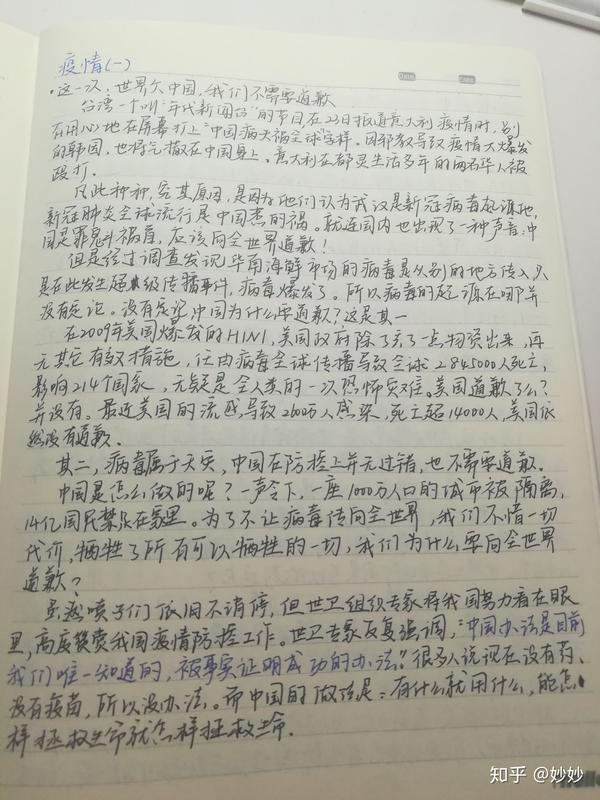 疫情(一)
Date Page
·这一次:世界欠中国,我们不需要道歉
台湾一个叫"年代新闻台"的节目在23日报道意大利疫情时,别
有用心地在屏幕打上"中国病夫祸全球"字样。因邪教导致疫情大爆发
的韩国,也将气撒在中国身上。意大利在都灵生活多年的两名华人被
殴打。
凡此种种,究其原因,是因为他们认为武汉是新冠病毒起源地,
新冠肺炎全球流行是中国惹的祸。就连国内也出现了一种声音:中
国是罪魁祸首,应该向全世界道歉!
但是经过调查发现华南海鲜市场的病毒是从别的地方传入,只
是在此发生超级传播事件,病毒爆发了。所以病毒的起源在哪并
没有定论。没有定论中国为什么要道歉?这是其一
在2009年美国爆发的H1N1,美国政府除了亮了一点物资出来,再
无其它有效措施,任由病毒全球传播导致全球2845000人死亡,
影响214个国家,无疑是全人类的一次恐怖灾难。美国道歉了么?
并没有。最近美国的流感导致2600万人感染,死亡超14000人,美国依
然没有道歉。
其二,病毒属于天灾,中国在防控上并无过错,也不需要道歉。
中国是怎么做的呢?一声令下,一座1000万人口的城市被隔离,
14亿国民禁足在家里。为了不让病毒传向全世界,我们不惜一切
代价,牺牲了所有可以牺牲的一切,我们为什么要向全世界
道歉?
虽然喷子们依旧不消停,但世卫组织专家将我国努力看在眼
里,高度赞赏我国疫情防控工作。世卫专家反复强调,"中国办法是目前
我们唯一知道的,被事实证明成功的办法。"很多人说现在没有药、
没有疫苗,所以没办法。而中国的做法是:有什么就用什么,能怎
样拯救生命就怎样拯救生命.
知乎 @妙妙